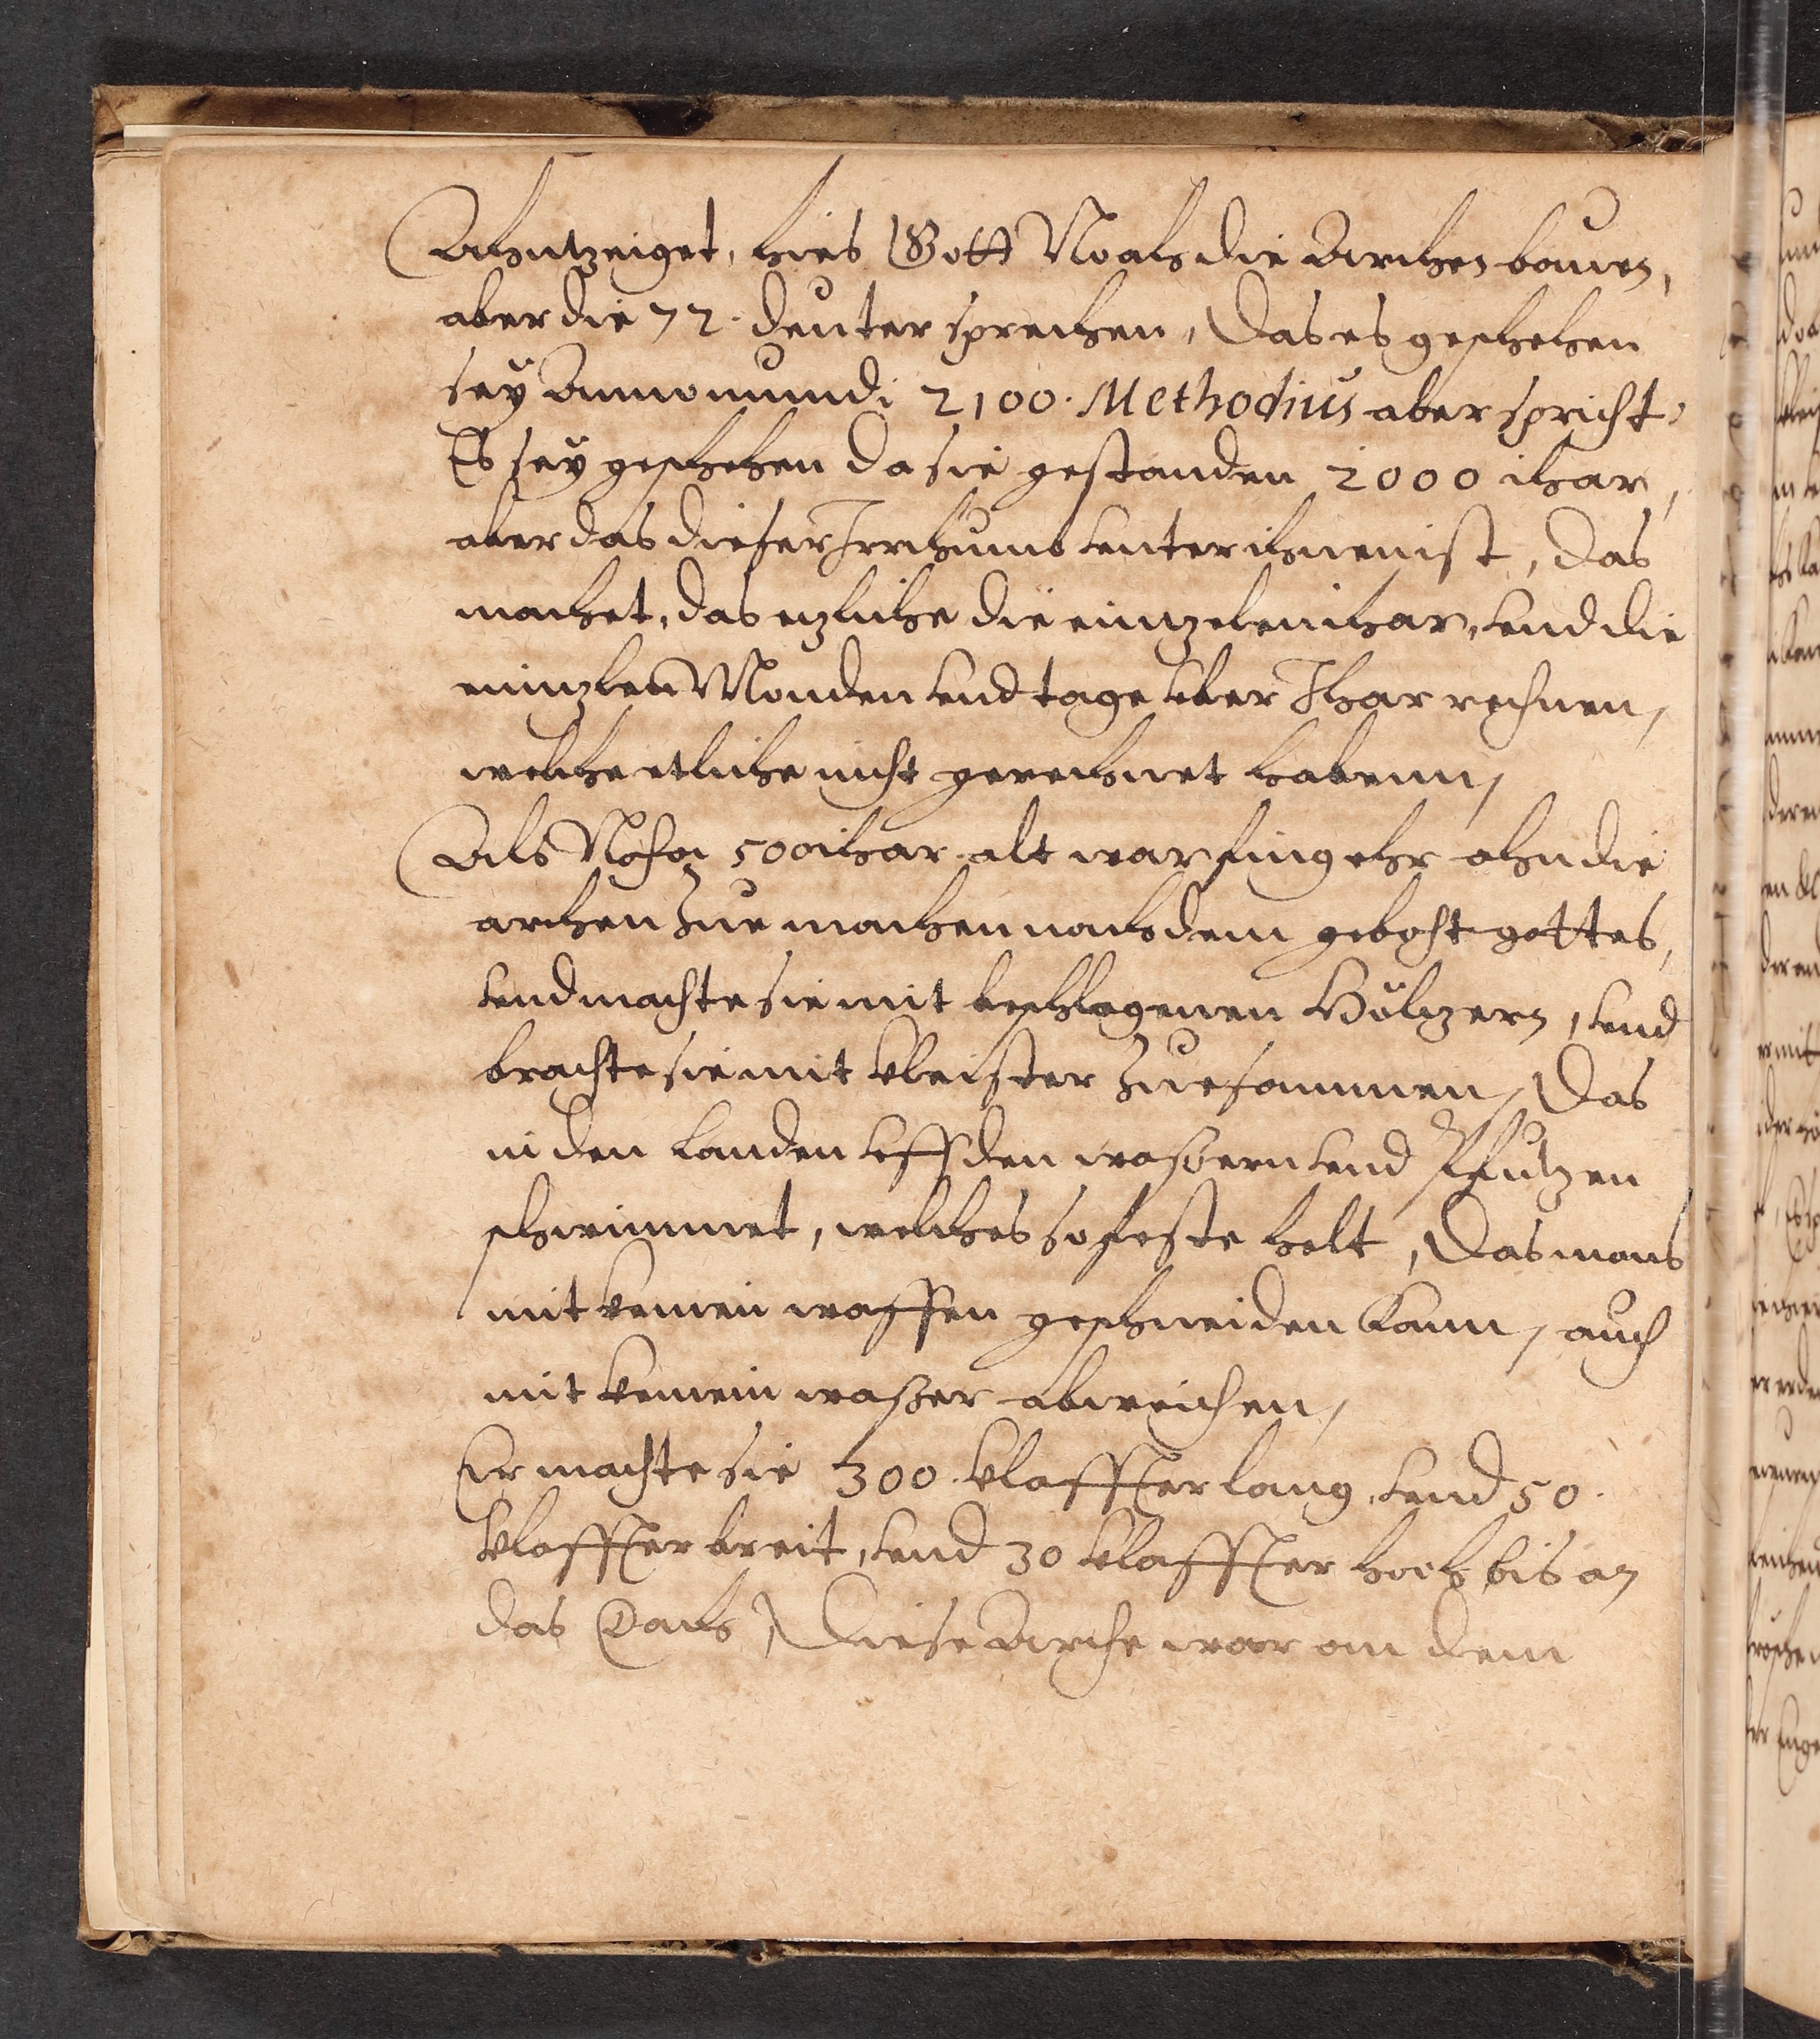 Ahntzeiget, hies Gott Noah die Archen bauen,
aber die 72. deuter sprechen, Das es geschehen
seÿ Anno mundi 2100. Methodius aber spricht,
Es seÿ geschehen da sie gestanden 2000 ihar,
aber das dieser Irrthumb unter ihnen ist, das
machet, das ezliche die eintzelen ihar, und die
eintzlen Monden und tage uber Ihar rechnen,
welche etliche nicht gerechnet habenn,
Als 500 ihar alt war fing ehr ahn die
archen zue machen nach dem geboht gottes,
und machte sie mit beschlagenen Höltzern, und
brachte sie mit kleister zuesammen, Das
in den Landen uff den waßern und Pfutzen
schwimmet, welches so feste helt, Das mans
mit keinen waffen geschneiden kann, auch
mit keinem waßer abweichen,
Er machte sie 300. klaffter lang, und 50.
klaffter breit, und 30 klaffter hoch bis an
das Dach, Diese Arche war an dem